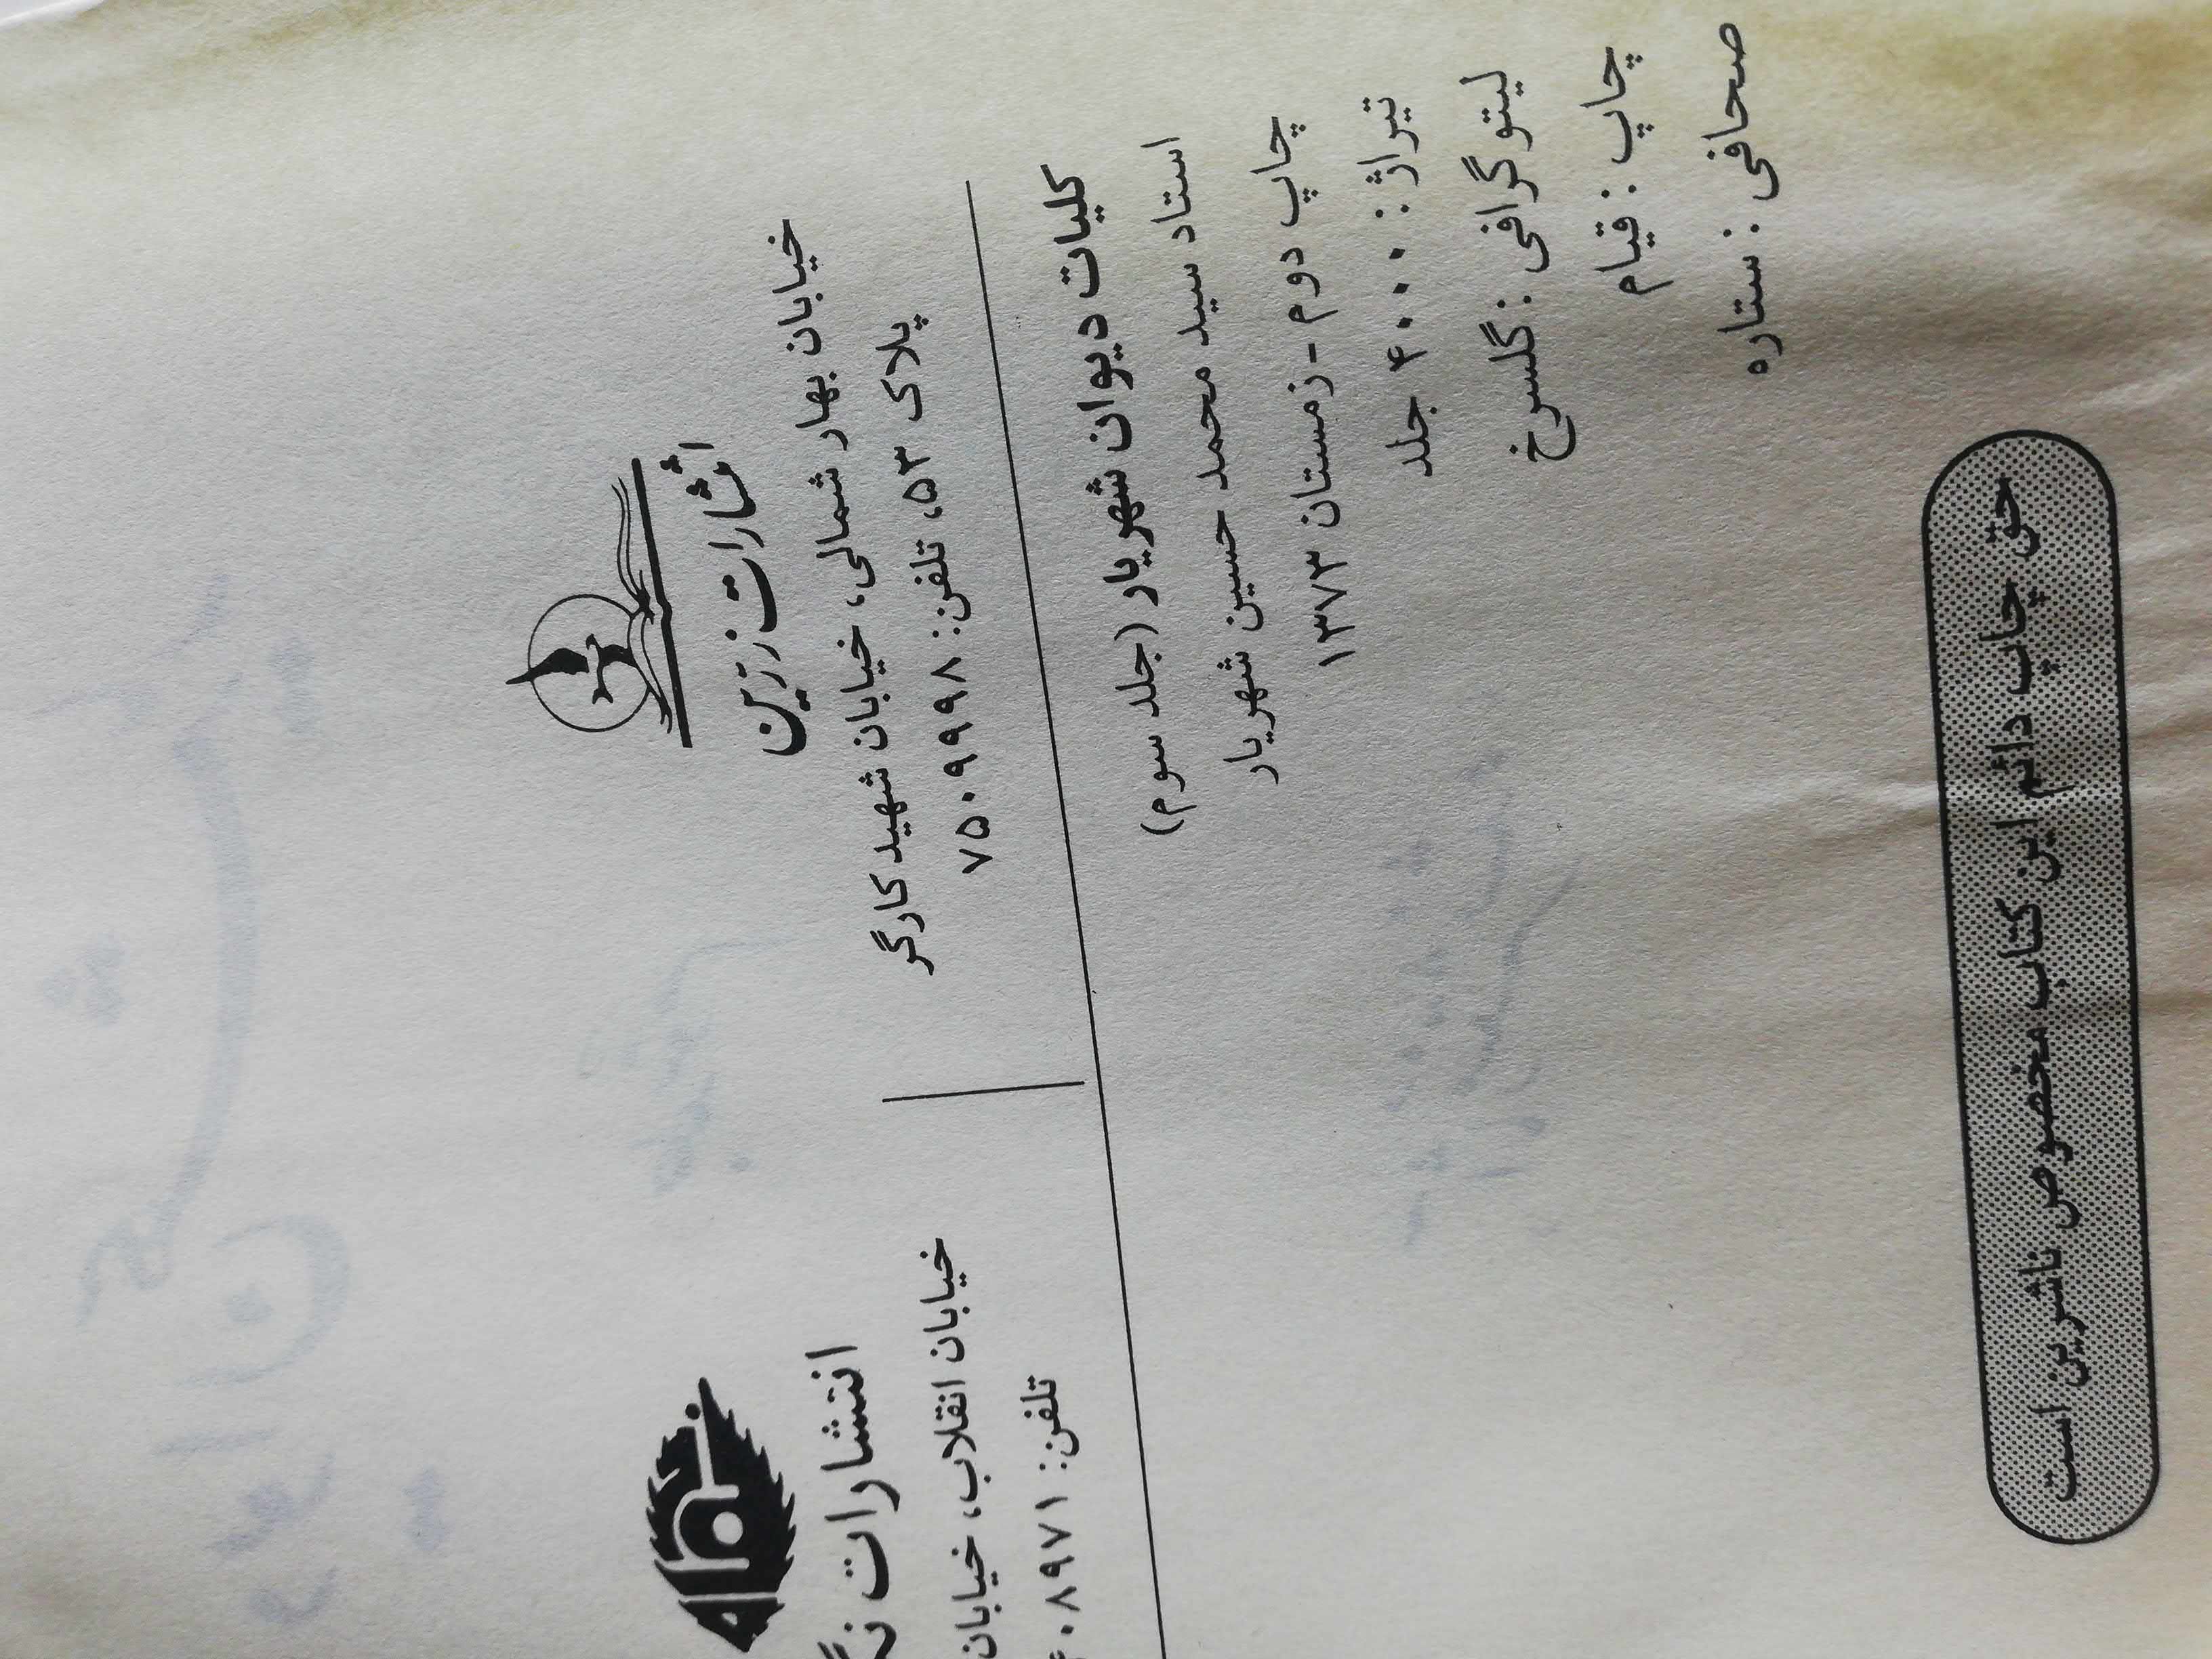 انتشارات زرین
خیابان بهار شمالی، خیابان شهید کارگر
پلاک ۵۳، تلفن: ۷۵۰۹۹۹۸
انتشارات
خیابان انقلاب، خیابان
تلفن: ۰۸۹۷۱
کلیات دیوان شهریار (جلد سوم)
استاد سید محمد حسین شهریار
چاپ دوم - زمستان ۱۳۷۳
تیراژ: ۴۰۰۰ جلد
لیتوگرافی: گلسرخ
چاپ: قیام
صحافی: ستاره
حق چاپ دائم این کتاب مخصوص ناشرین است